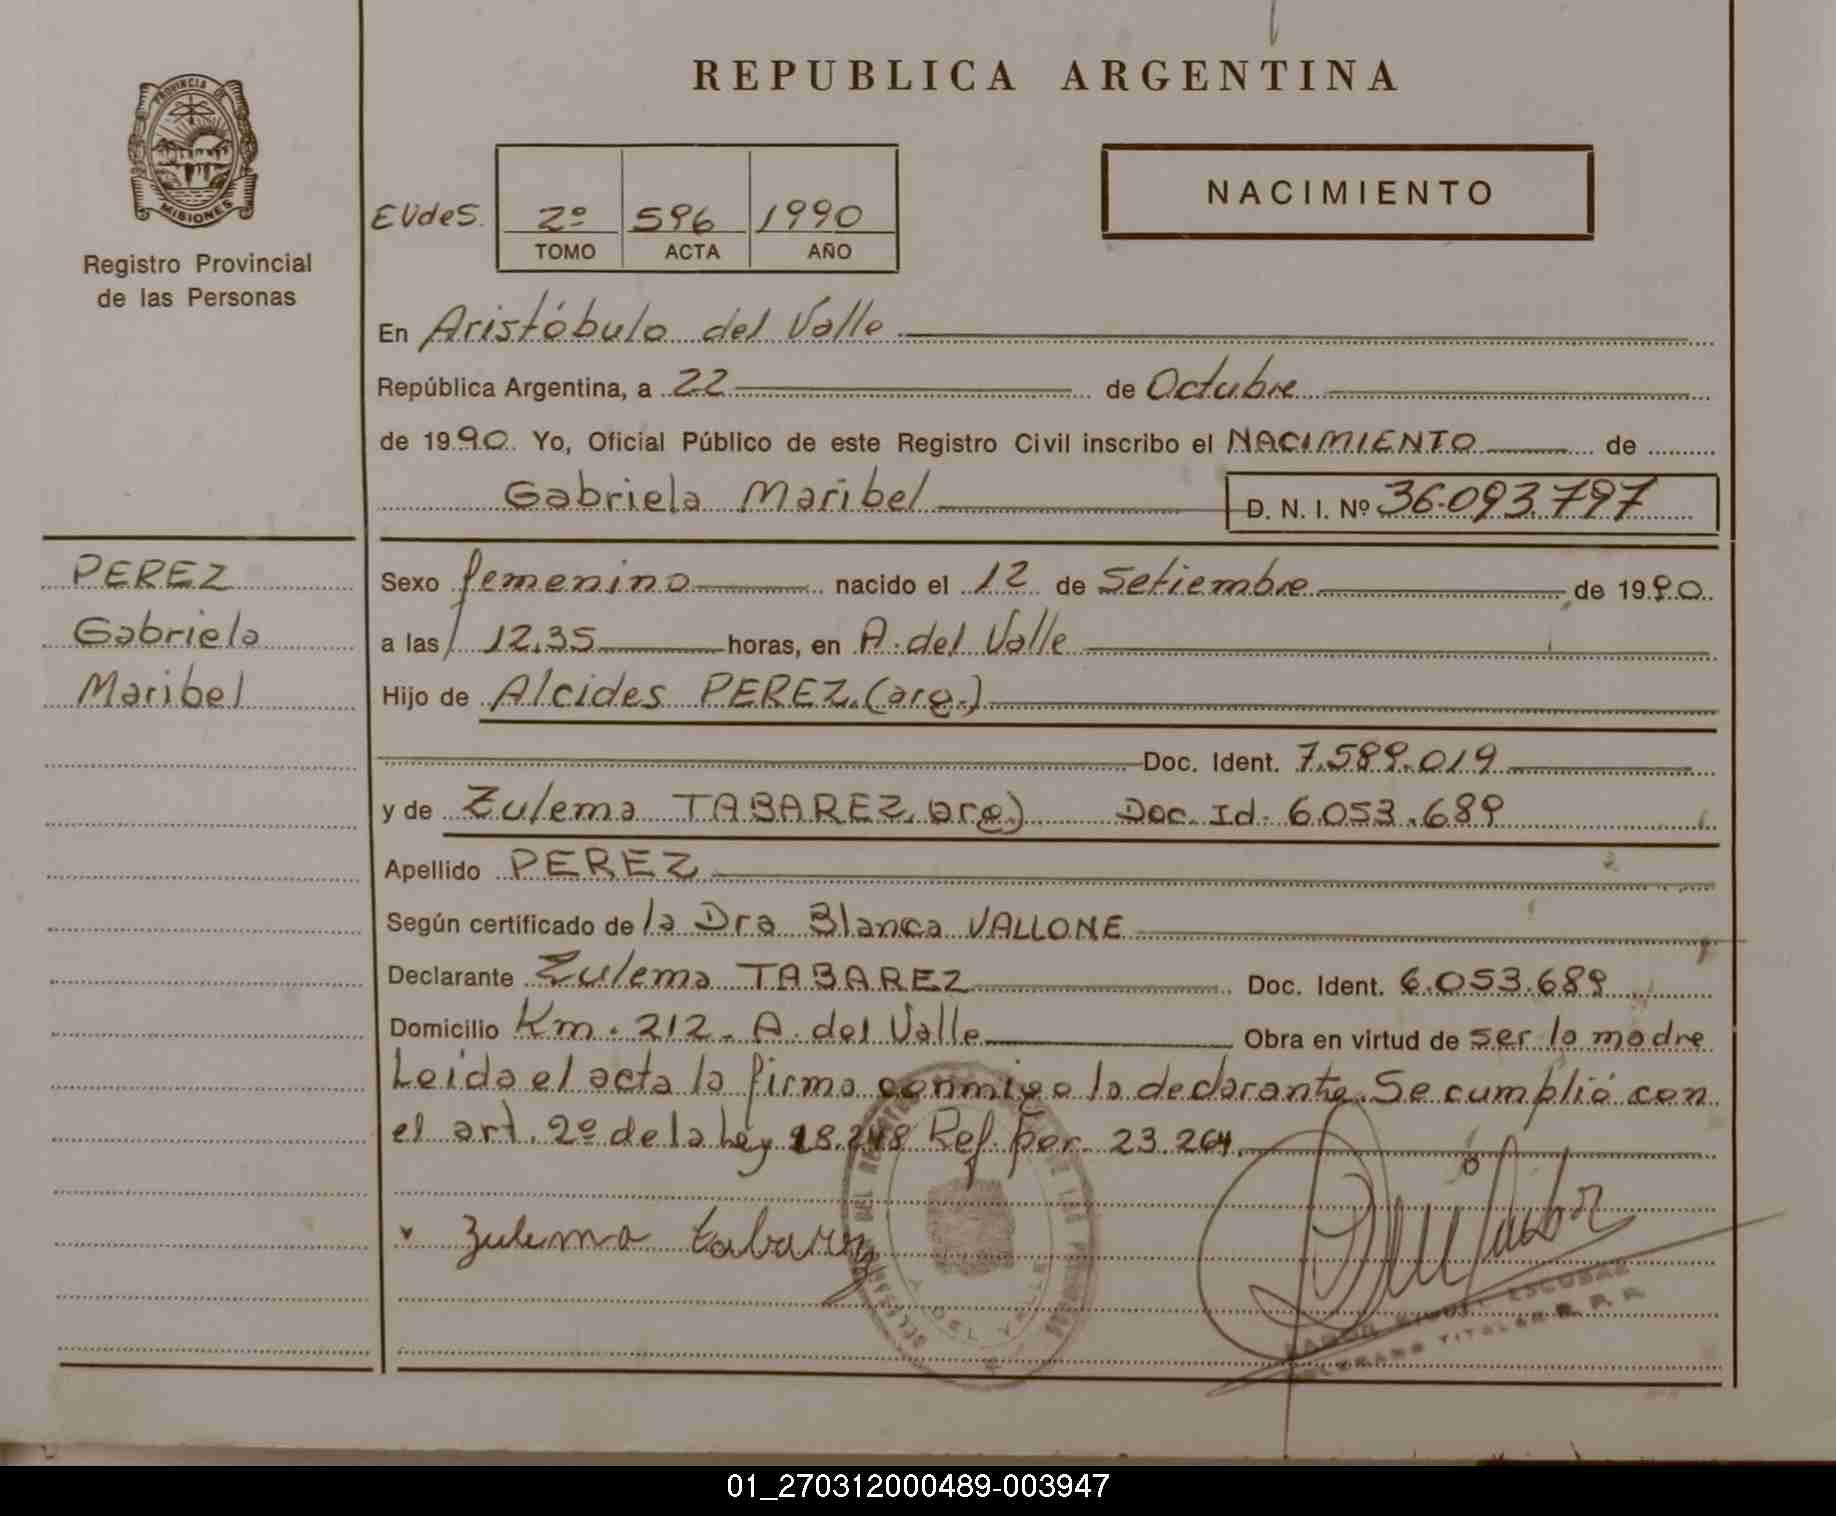 REPUBLICA ARGENTINA
PROVINCIA DE
MISIONES
Registro Provincial
de las Personas
NACIMIENTO
EUdeS. 2º 596 1990
TOMO ACTA AÑO
En Aristóbulo del Valle
República Argentina, a 22 de Octubre
de 1990. Yo, Oficial Público de este Registro Civil inscribo el NACIMIENTO de
Gabriela Maribel D. N. I. Nº 36.093.797
PEREZ
Gabriela
Maribel
Sexo femenino nacido el 12 de Setiembre de 1990.
a las 12.35 horas, en A. del Valle
Hijo de Alcides PEREZ.(arg.)
Doc. Ident. 7.589.019
y de Zulema TABAREZ.(arg.) Doc. Id. 6.053.689
Apellido PEREZ
Según certificado de la Dra Blanca VALLONE
Declarante Zulema TABAREZ Doc. Ident. 6.053.689
Domicilio Km. 212. A. del Valle Obra en virtud de ser la madre
Leida el acta la firma conmigo la declarante. Se cumplió con
el art. 2º de la Ley 18.248 Ref. por. 23.264.
Zulema Tabarez
ESCOBAR
TITULAR R. P. P.
01_270312000489-003947